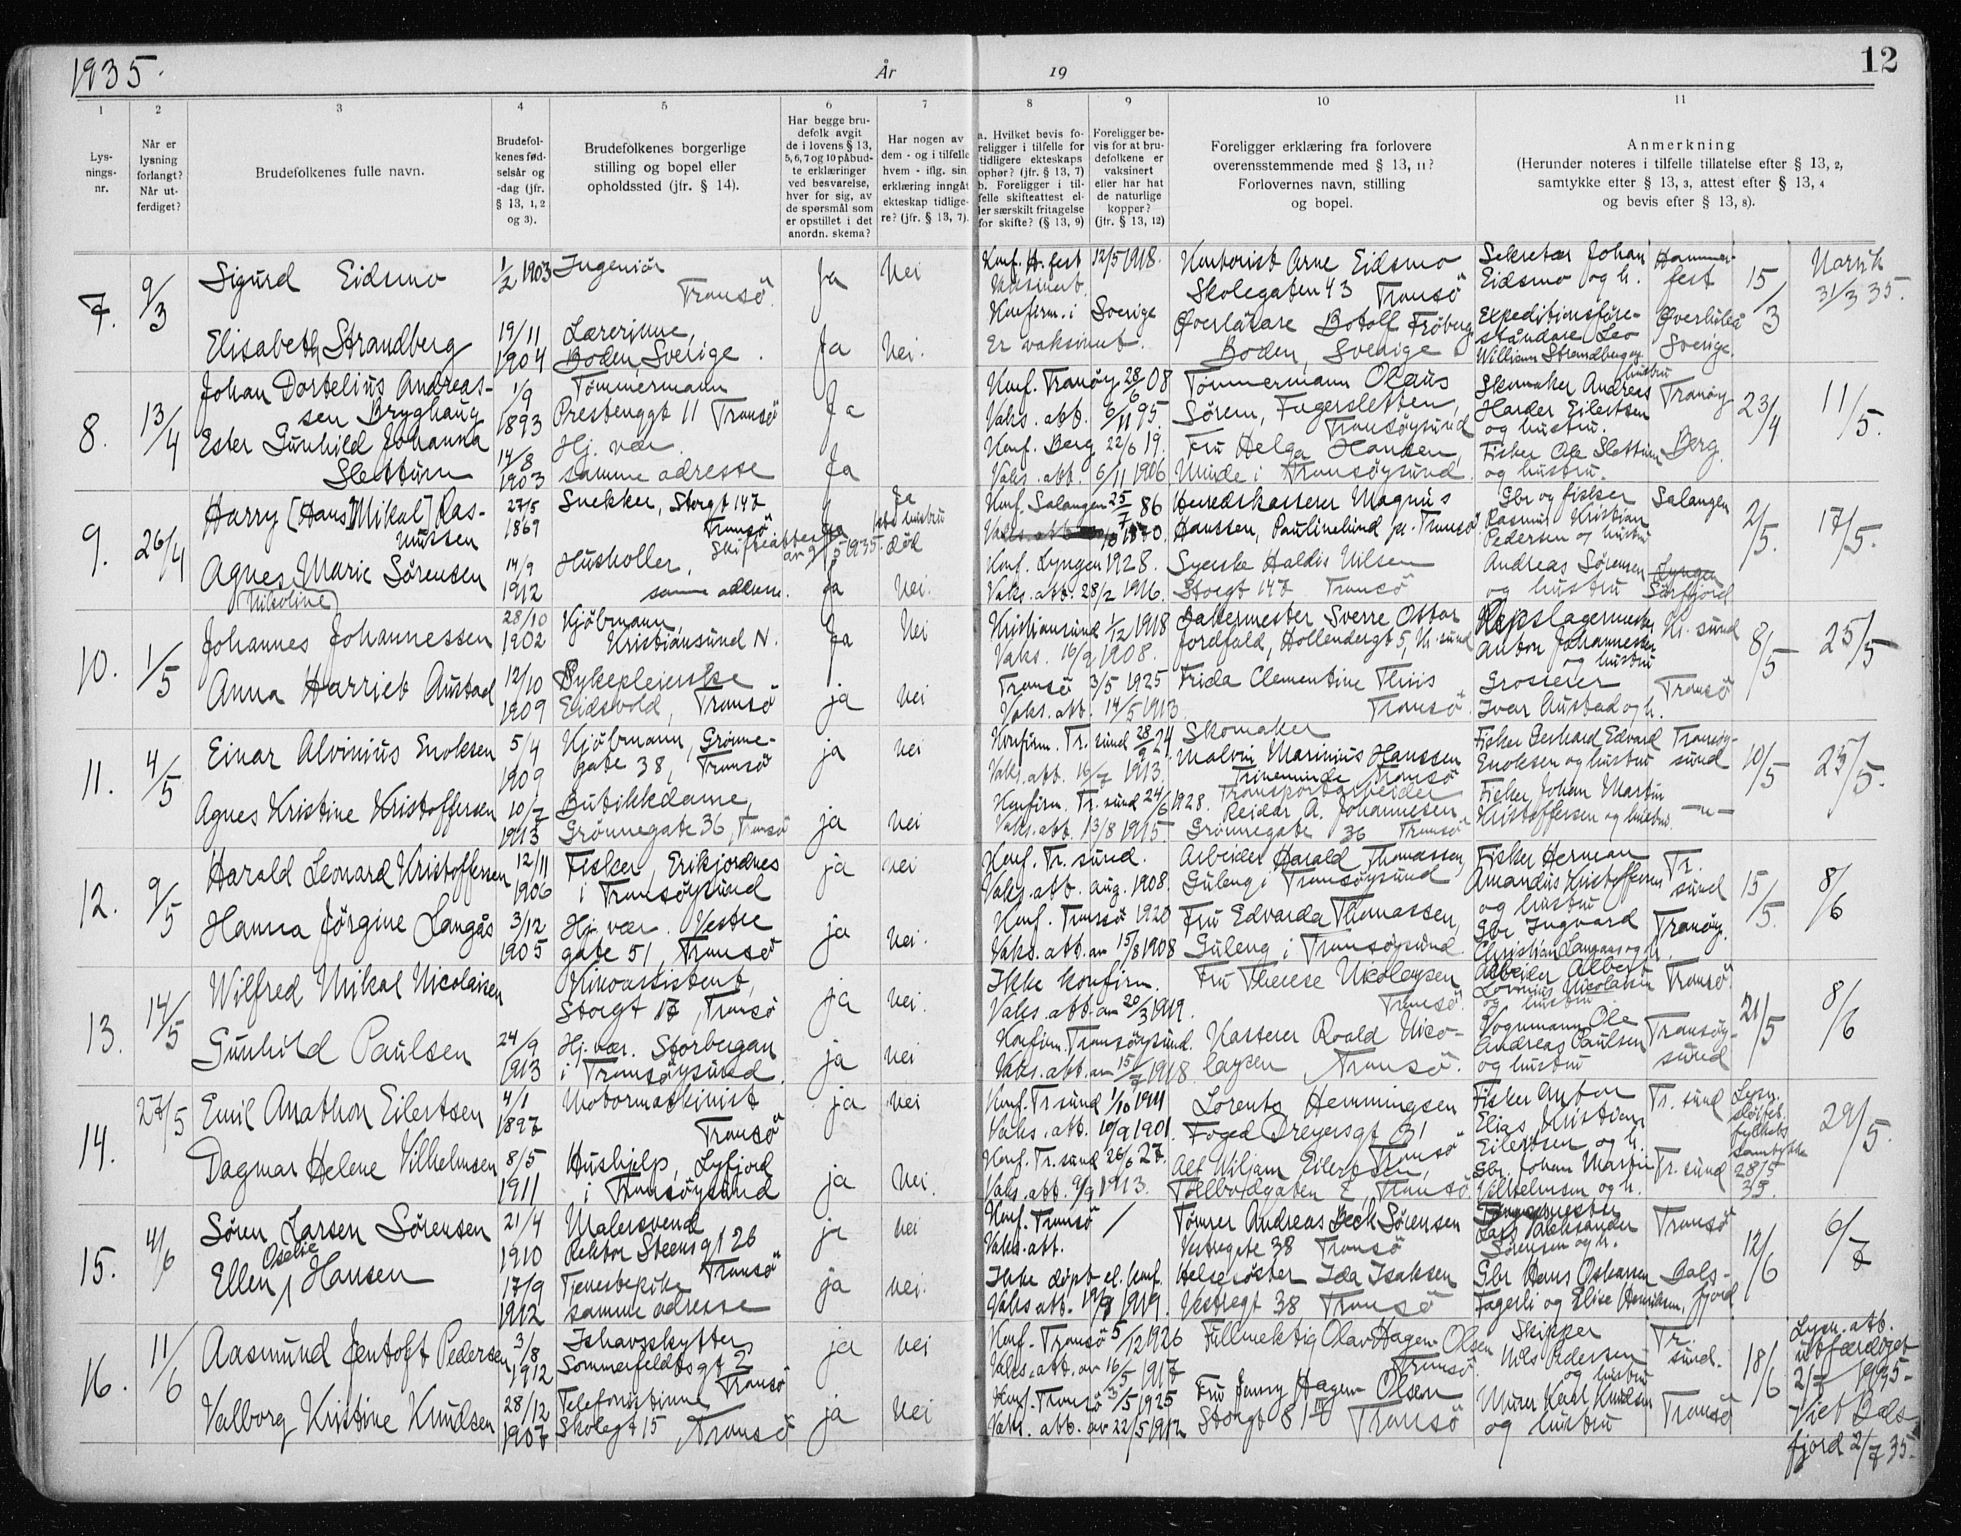 1935.
År
19
12
1
2
3
4
5
6
7
8
9
10
11
Lys-
nings-
nr.
Når er
lysning
forlangt?
Når ut-
ferdiget?
Brudefolkenes fulle navn.
Brudefol-
kenes fød-
selsår og
-dag (jfr.
§ 13, 1, 2
og 3).
Brudefolkenes borgerlige
stilling og bopel eller
opholdssted (jfr. § 14).
Har begge bru-
defolk avgit
de i lovens § 13,
5, 6, 7 og 10 påbud-
te erklæringer
ved besvarelse,
hver for sig, av
de spørsmål som
er opstillet i det
anordn. skema?
Har nogen av
dem - og i tilfelle
hvem - iflg. sin
erklæring inngått
ekteskap tidlige-
re? (jfr. § 13, 7).
a. Hvilket bevis fo-
religger i tilfelle for
tidligere ekteskaps
ophør? (jfr. § 13, 7)
b. Foreligger i til-
felle skifteattest el-
ler særskilt fritagelse
for skifte? (§ 13, 9)
Foreligger be-
vis for at bru-
defolkene er
vaksinert
eller har hat
de naturlige
kopper?
(jfr. § 13, 12)
Foreligger erklæring fra forlovere
overensstemmende med § 13, 11?
Forlovernes navn, stilling
og bopel.
Anmerkning
(Herunder noteres i tilfelle tillatelse efter § 13, 2,
samtykke efter § 13, 3, attest efter § 13, 4
og bevis efter § 13, 8).
7.
9/3
Sigurd Eidsmo
1/2 1903
Ingeniör
Tromsö.
Ja
Nei
Konf. H.fest 12/5 1918.
Vaksinert
Kontorist Arne Eidsmo
Skolegaten 43 Tromsö
Sekretær Johan
Eidsmo og h.
Hammer-
fest
15/3
Narvik
31/3 35.
Elisabeth Strandberg
19/11
1904
Lærerinne,
Boden, Sverige.
Ja
Nei.
Konfirm. i Sverige
Er vaksinert.
Överlärare Botolf Fröberg
Boden, Sverige
Expeditionsföre-
ståndare Leo
William Strandberg og
hustru
Överluleå
Sverige.
8.
13/4
Johan Dortelius Andreas-
sen Bryghaug
1/9
1893
Tömmermann
Prestenggt 11 Tromsö
Ja
Konf. Tranöy 28/6 08
Vaks. att. 6/11 95.
Tömmermann Olaus
Sörem, Fagersletten,
Tromsöysund
Skomaker Andreas
Harder Eilertsen
og hustru.
Tranöy
23/4
11/5.
Ester Gunhild Johanna
Slettum
14/8
1903
Hj. vær.
samme adresse
Ja
Konf. Berg 22/6 19.
Vaks. att. 6/11 1906
Fru Helga Hansen,
Minde i Tromsöysund
Fisker Ole Slettum
og hustru.
Berg.
9.
26/4
Harry [Hans] Mikal Ras-
mussen
27/5
1869
Snekker, Storgt 147
Tromsö
Skifteattest
av 9/5 1935.
Ja
Ja
hustru
död
Konf. Salangen 25/7 86
1870.
Herredskasserer Magnus
Hanssen, Paulinelund pr. Tromsö.
Gbr og fisker
Rasmus Kristian
Pedersen og hustru
Salangen
2/5.
17/5.
Agnes Marie Sörensen
(Nikoline)
14/9
1912
Husholder,
samme adresse.
Ja
Nei.
Konf. Lyngen 1928.
Vaks. att. 28/2 1916.
Syerske Haldis Nilsen
Storgt 147 Tromsö
Andreas Sörensen
og hustru
Lyngen
Sörfjord
10.
1/5
Johannes Johannessen
28/10
1902
Kjöbmann,
Kristiansund N.
Ja
Nei
Kristiansund 1/12 1918
Vaks. 16/9 1908.
Bakermester Sverre Ottar
Jordfald, Hollendergt 5, Kr. sund
Repslagermester
Anton Johannessen
og hustru
Kr. sund
8/5
25/5
Anna Harriet Austad
12/10
1909
Sykepleierske
Eidsvold, Tromsö
ja
nei
Tromsö 3/5 1925
Vaks. att. 14/5 1913
Frida Clementine Thiis
Tromsö.
Grosserer
Ivar Austad og h.
Tromsö
11.
4/5
Einar Alvinius Enoksen
5/4
1909
Kjöbmann, Grönne-
gate 38, Tromsö
ja
nei
Konfirm. Tr. sund 28/9 24
Vaks. att. 16/7 1913.
Skomaker
Malvin Marinius Hanssen
Trineminde Tromsö
Fisker Gerhard Edvard
Enoksen og hustru
Tromsöy-
sund
10/5
25/5.
Agnes Kristine Kristoffersen
10/7
1913
Butikkdame,
Grönnegate 36, Tromsö
ja
nei
Konfirm. Tr. sund 24/6 1928.
Vaks. att. 13/8 1915.
Transportarbeider
Reidar A. Johannesen
Grönnegate 36 Tromsö
Fisker Johan Martin
Kristoffersen og hustru.
—"—
12.
9/5
Harald Leonard Kristoffersen
12/11
1906
Fisker, Erikjordnes
i Tromsöysund
ja
nei
Konf. Tr. sund.
Vaks. att. aug. 1908.
Arbeider Harald Thomassen,
Guleng i Tromsöysund
Fisker Herman
Amandus Kristoffersen
og hustru
Tr.
sund
15/5.
8/6
Hanna Jörgine Langås
3/12
1905
Hj. vær. Vestre
gate 51, Tromsö
ja
nei.
Konf. Tromsö 1920
Vaks. att. av 15/8 1908
Fru Edvarda Thomassen,
Guleng i Tromsöysund.
Gbr Ingvard
Christian Langaas og h.
Tranöy.
13.
14/5
Wilfred Mikal Nicolaisen
Kinoassistent,
Storgt 17, Tromsö
ja
nei.
Ikke konfirm.
Vaks. att. av 20/3 1919.
Fru Therese Nicolaysen
Tromsö.
Arbeider Albert
Lovinius Nicolaisen
og hustru
Tromsö
21/5
8/6
Gunhild Paulsen
24/9
1913
Hj. vær. Storbergan
i Tromsöysund.
ja
nei
Konfirm. Tromsöysund.
Vaks. att. av 15/7 1918.
Kasserer Roald Nico-
laysen Tromsö.
Vognmann Ole
Andreas Paulsen
og hustru
Tromsöy-
sund
14.
27/5
Emil Anathon Eilertsen
4/1
1897
Motormaskinist
Tromsö
ja
nei
Konf. Tr. sund 1/10 1911
Vaks. att. 10/9 1901.
Lorents Hemmingsen
Foged Dreyersgt 31
Tromsö
Fisker Anton
Elias Kristian
Eilertsen og h.
Tr. sund
Lysn.
slöifet
fylkets
samtykke
28/5
35.
29/5.
Dagmar Helene Vilhelmsen
8/5
1911
Hushjelp, Lyfjord
i Tromsöysund
ja
Nei.
Konf. Tr. sund 26/6 27.
Vaks. att. 9/9 1913.
Alf Wiljam Eilertsen,
Tollbodgaten 2, Tromsö.
Gbr. Johan Martin
Vilhelmsen og h.
Tr. sund
15.
4/6
Sören Larsen Sörensen
21/4
1910
Malersvend
Rektor Steensgt 26
Tromsö
ja
nei
Konf. Tromsö /
Vaks. att.
Tömrer Andreas Beck Sörensen
Vestregate 38 Tromsö
Lars Aleksander
Sörensen og h.
Tromsö
12/6
6/7
Ellen Oselie Hansen
17/9
1912
Tjenestepike
samme adresse
ja
nei.
Ikke döpt el. konf.
Vaks att. 19/9 1919.
Helsesöster Ida Isaksen
Vestregt 38 Tromsö
Gbr Hans Oskarsen
Fagerli og Elise Henriksen,
Bals-
fjord
16.
11/6
Aasmund Jentoft Pedersen
3/8
1912
Ishavsskytter
Sommerfeldtsgt 2
Tromsö
ja
nei
Konf. Tromsö 5/12 1926
Vaks. att. av 16/5 1917
Fullmektig Olav Hagen Olsen
Tromsö.
Skipper
Nils Pedersen
og hustru
Tr.
sund.
18/6
Lysn. att.
utferdiget
2/7 1935-
Viet Bals-
fjord 2/7 35.
Valborg Kristine Knudsen
28/12
1907
Telefonistinne
Skolegt 15 Tromsö
ja
nei
Konf. Tromsö 3/5 1925
Vaks. att. av 22/5 1912
Fru Jenny Hagen Olsen
Storgt 81 Tromsö
Murer Karl Knudsen
og hustru
Tromsö